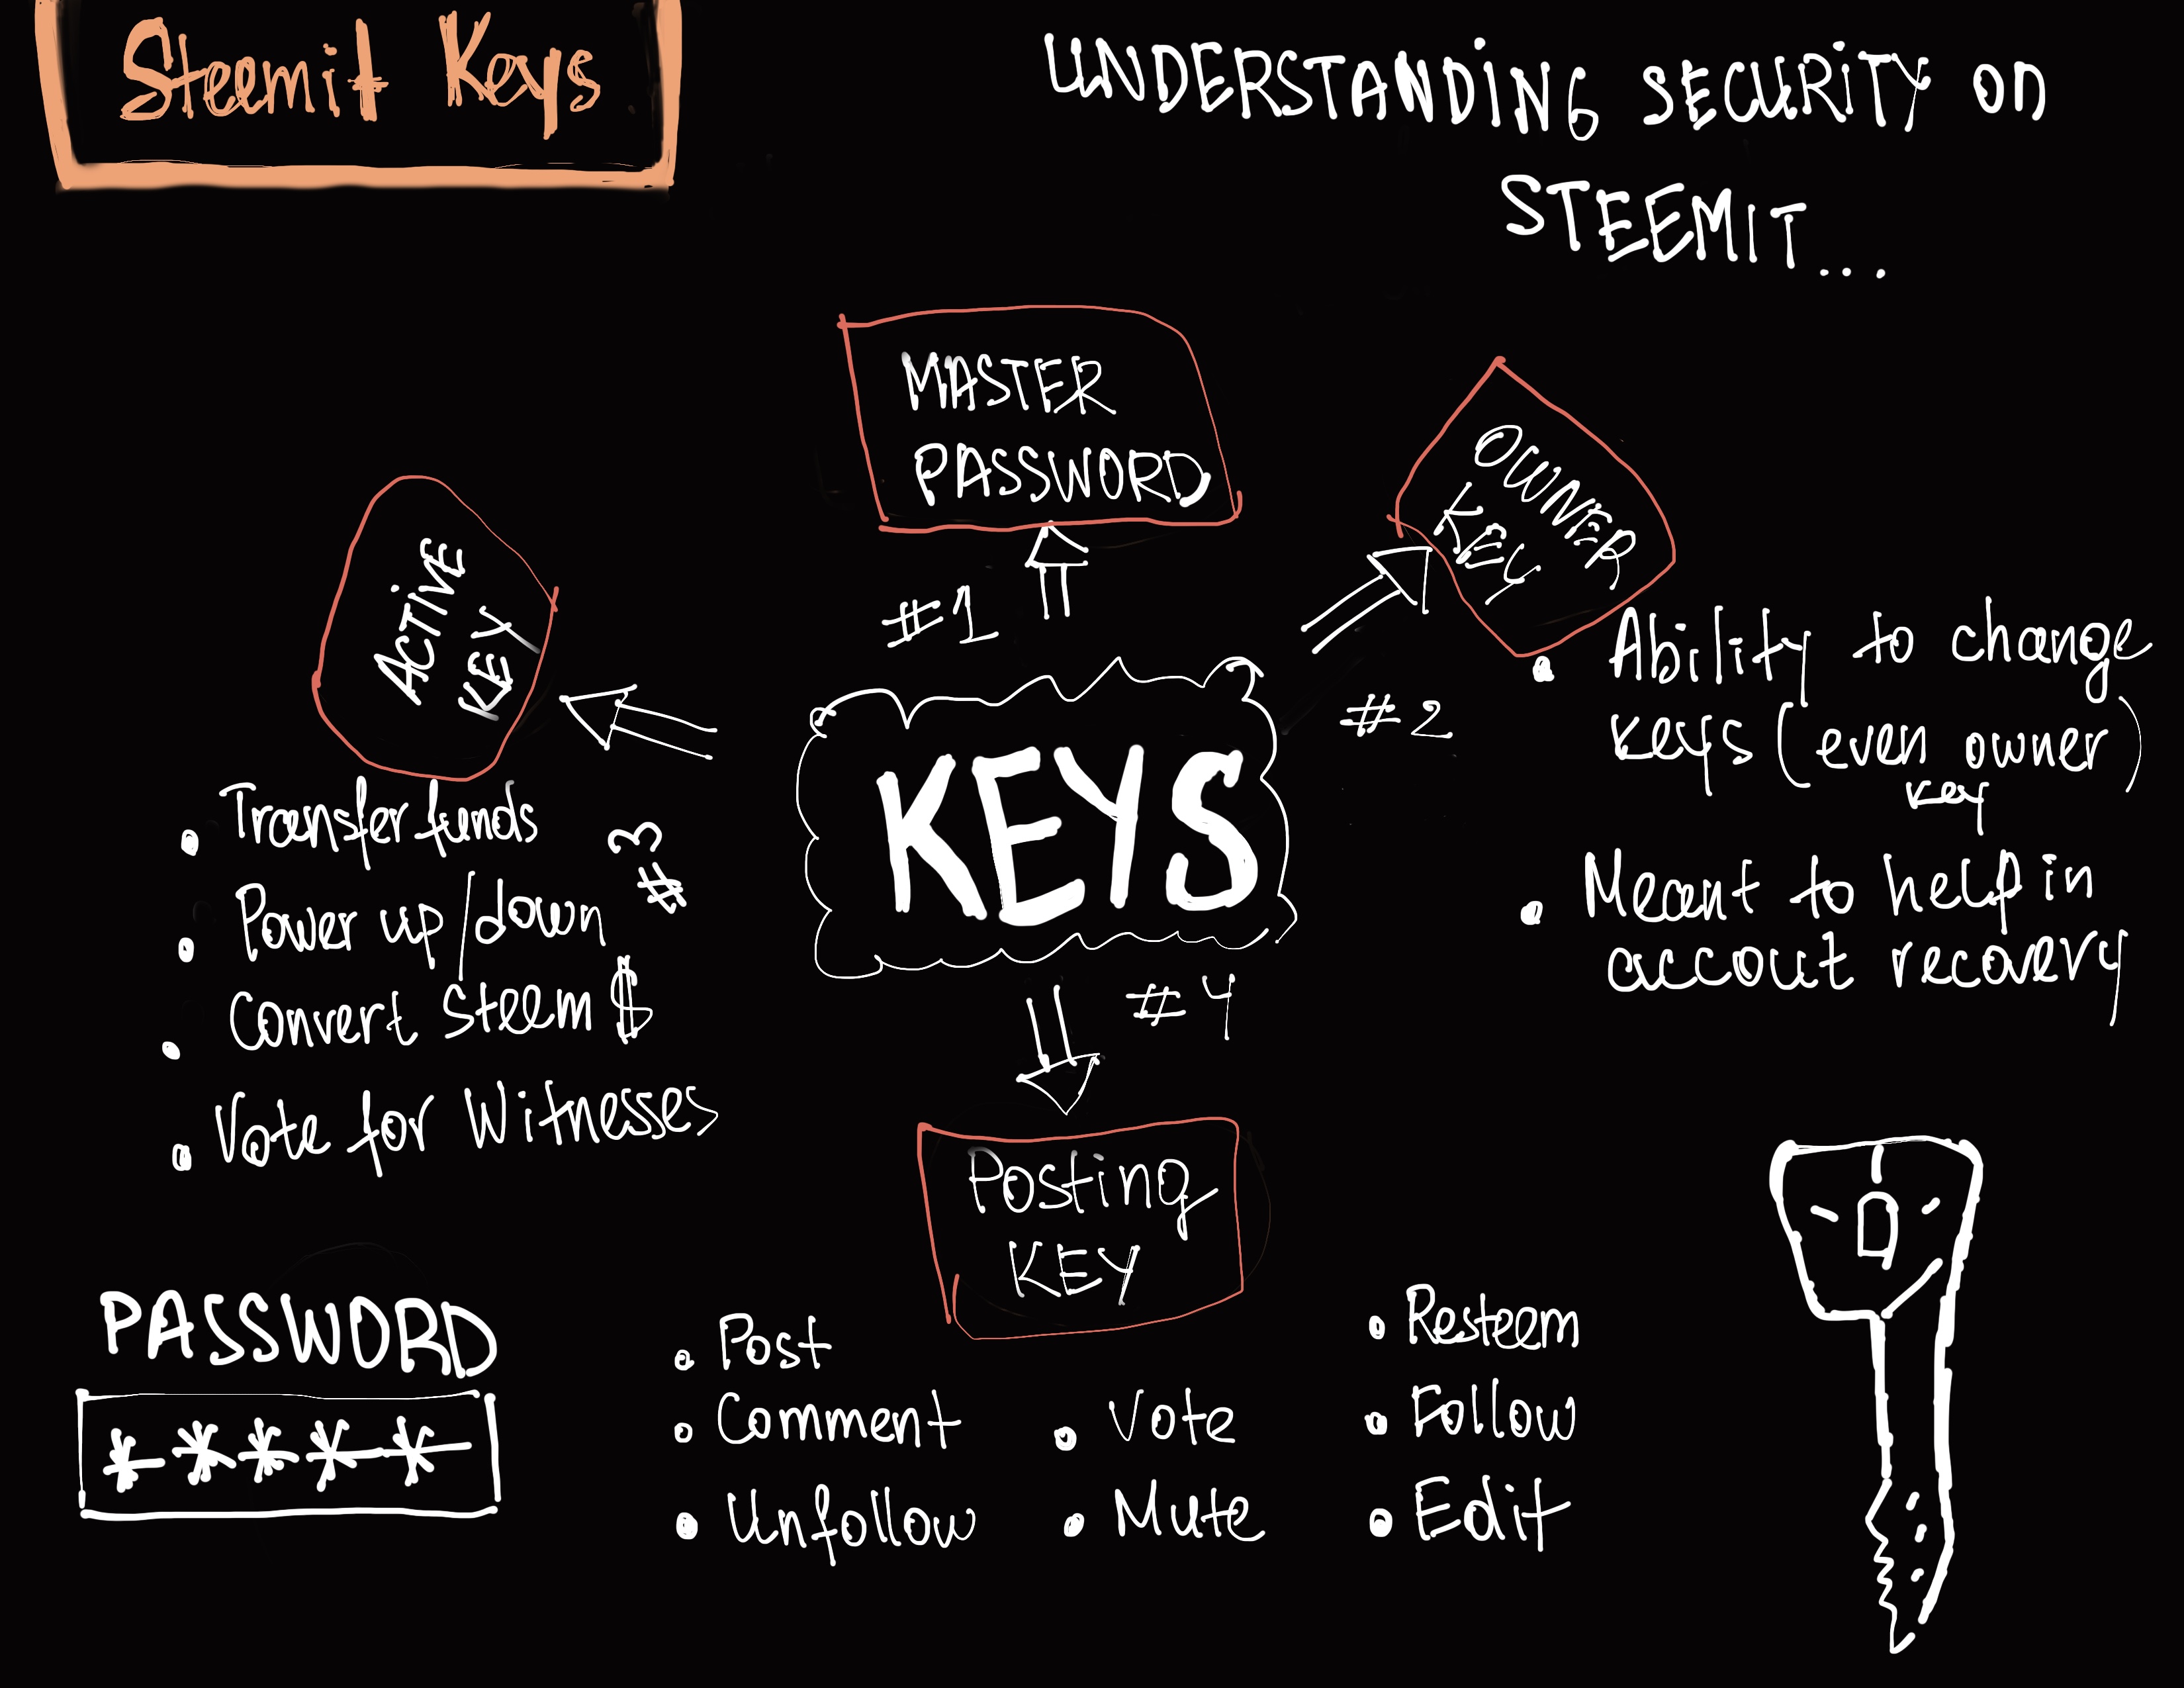 Steemit Keys
UNDERSTANDING SECURITY on
STEEMIT...
MASTER
PASSWORD
#1
OWNER
KEY
#2
• Ability to change
keys (even owner)
key
• Meant to help in
accout recovery
ACTIVE
KEY
#3
• Transfer funds
• Power up/down
• Convert Steem $
• Vote for Witnesses
KEYS
#4
Posting
KEY
• Post
• Comment
• Unfollow
• Vote
• Mute
• Resteem
• Follow
• Edit
PASSWORD
*****